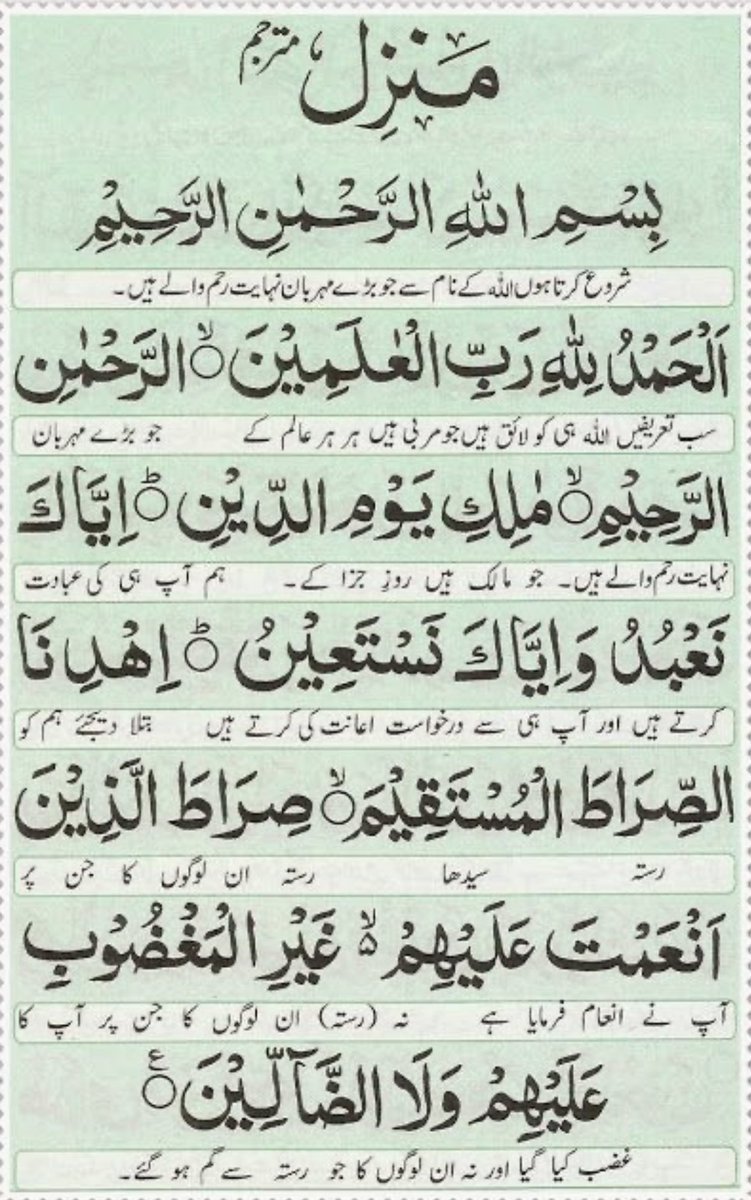 منزل مترجم
بِسْمِ اللهِ الرَّحْمٰنِ الرَّحِيْمِ
شروع کرتا ہوں اللہ کے نام سے جو بڑے مہربان نہایت رحم والے ہیں۔
اَلْحَمْدُ لِلّٰهِ رَبِّ الْعٰلَمِيْنَ ۙ الرَّحْمٰنِ
سب تعریفیں اللہ ہی کو لائق ہیں جو مربی ہیں ہر ہر عالم کے جو بڑے مہربان
الرَّحِيْمِ ۙ مٰلِكِ يَوْمِ الدِّيْنِ ؕ اِيَّاكَ
نہایت رحم والے ہیں۔ جو مالک ہیں روزِ جزا کے۔ ہم آپ ہی کی عبادت
نَعْبُدُ وَاِيَّاكَ نَسْتَعِيْنُ ؕ اِهْدِنَا
کرتے ہیں اور آپ ہی سے درخواست اعانت کی کرتے ہیں بتلا دیجئے ہم کو
الصِّرَاطَ الْمُسْتَقِيْمَ ۙ صِرَاطَ الَّذِيْنَ
رستہ سیدھا رستہ ان لوگوں کا جن پر
اَنْعَمْتَ عَلَيْهِمْ ۙ۵ غَيْرِ الْمَغْضُوْبِ
آپ نے انعام فرمایا ہے نہ (رستہ) ان لوگوں کا جن پر آپ کا
عَلَيْهِمْ وَلَا الضَّآلِّيْنَ ۧ
غضب کیا گیا اور نہ ان لوگوں کا جو رستہ سے گم ہو گئے۔